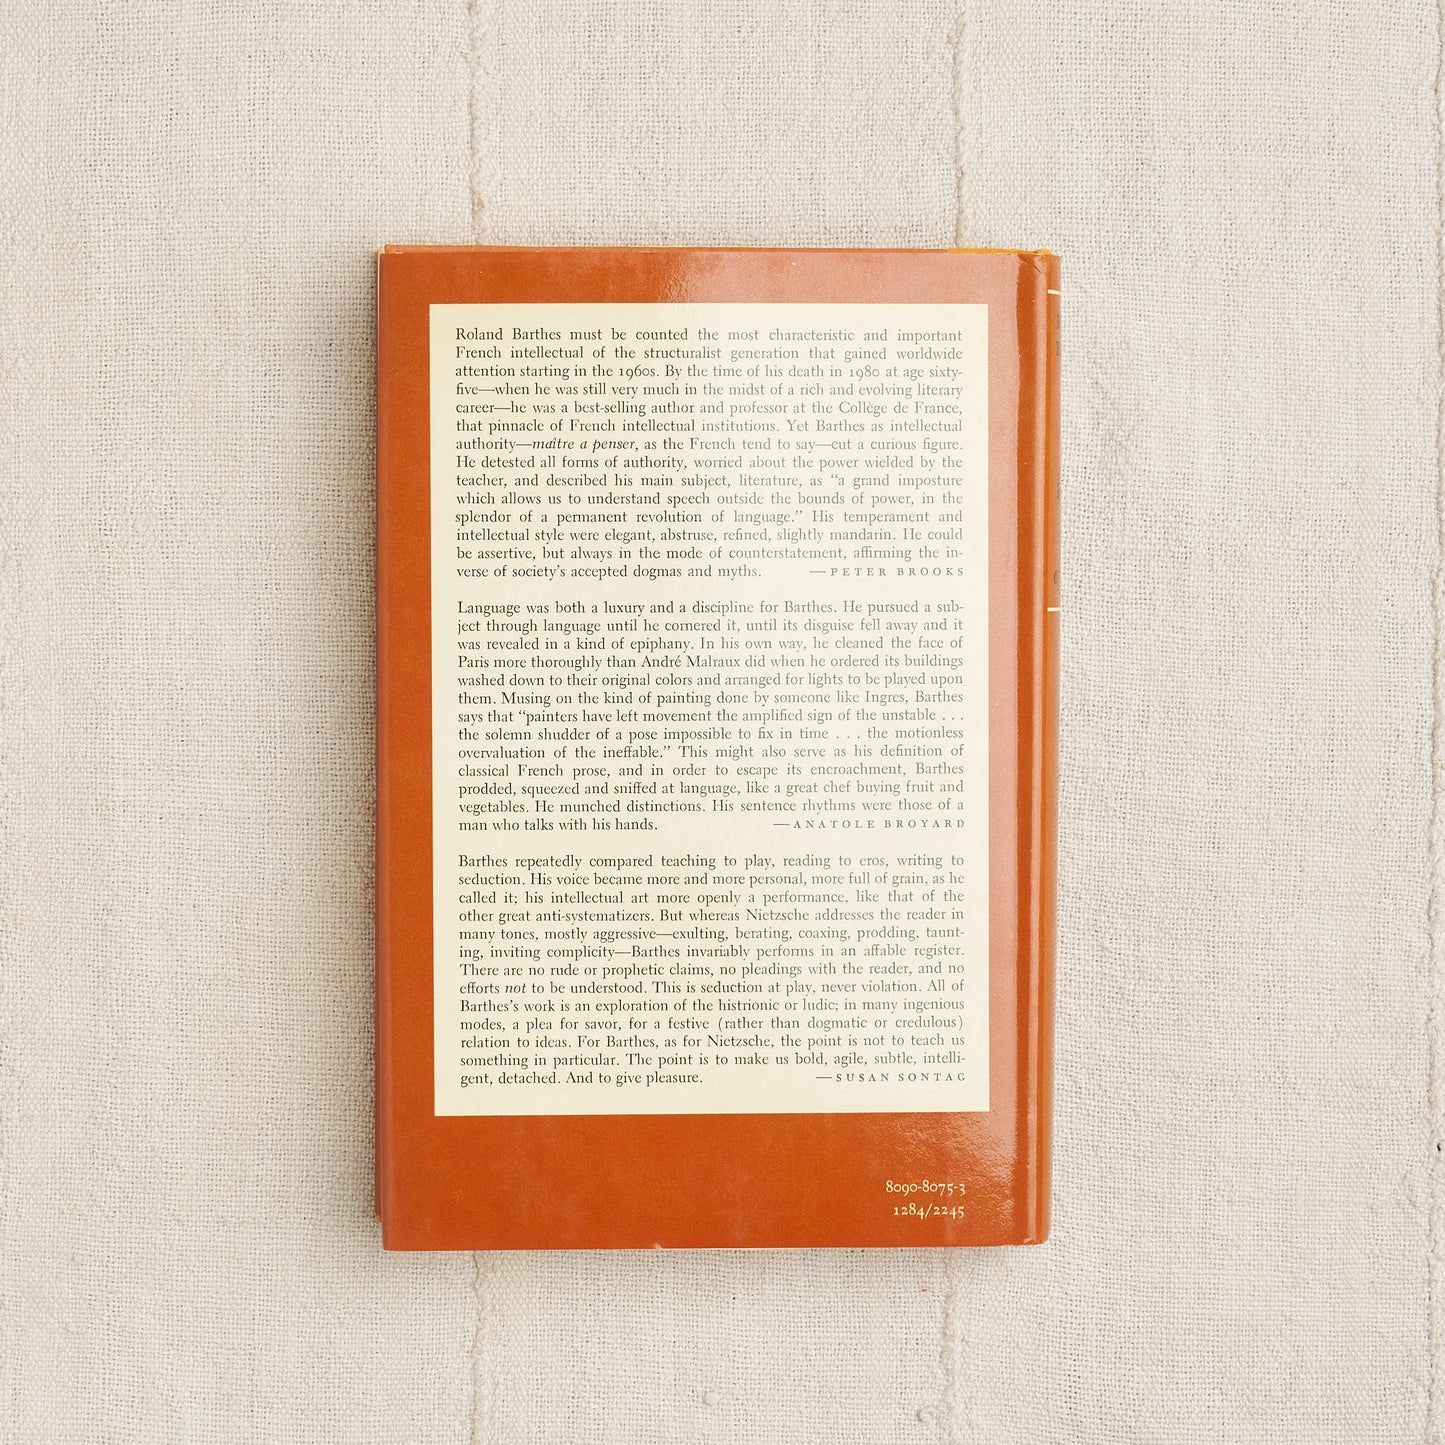 Roland Barthes must be counted the most characteristic and important
French intellectual of the structuralist generation that gained worldwide
attention starting in the 1960s. By the time of his death in 1980 at age sixty-
five—when he was still very much in the midst of a rich and evolving literary
career—he was a best-selling author and professor at the Collège de France,
that pinnacle of French intellectual institutions. Yet Barthes as intellectual
authority—maître a penser, as the French tend to say—cut a curious figure.
He detested all forms of authority, worried about the power wielded by the
teacher, and described his main subject, literature, as “a grand imposture
which allows us to understand speech outside the bounds of power, in the
splendor of a permanent revolution of language.” His temperament and
intellectual style were elegant, abstruse, refined, slightly mandarin. He could
be assertive, but always in the mode of counterstatement, affirming the in-
verse of society’s accepted dogmas and myths. —PETER BROOKS
Language was both a luxury and a discipline for Barthes. He pursued a sub-
ject through language until he cornered it, until its disguise fell away and it
was revealed in a kind of epiphany. In his own way, he cleaned the face of
Paris more thoroughly than André Malraux did when he ordered its buildings
washed down to their original colors and arranged for lights to be played upon
them. Musing on the kind of painting done by someone like Ingres, Barthes
says that “painters have left movement the amplified sign of the unstable . . .
the solemn shudder of a pose impossible to fix in time . . . the motionless
overvaluation of the ineffable.” This might also serve as his definition of
classical French prose, and in order to escape its encroachment, Barthes
prodded, squeezed and sniffed at language, like a great chef buying fruit and
vegetables. He munched distinctions. His sentence rhythms were those of a
man who talks with his hands. —ANATOLE BROYARD
Barthes repeatedly compared teaching to play, reading to eros, writing to
seduction. His voice became more and more personal, more full of grain, as he
called it; his intellectual art more openly a performance, like that of the
other great anti-systematizers. But whereas Nietzsche addresses the reader in
many tones, mostly aggressive—exulting, berating, coaxing, prodding, taunt-
ing, inviting complicity—Barthes invariably performs in an affable register.
There are no rude or prophetic claims, no pleadings with the reader, and no
efforts not to be understood. This is seduction at play, never violation. All of
Barthes’s work is an exploration of the histrionic or ludic; in many ingenious
modes, a plea for savor, for a festive (rather than dogmatic or credulous)
relation to ideas. For Barthes, as for Nietzsche, the point is not to teach us
something in particular. The point is to make us bold, agile, subtle, intelli-
gent, detached. And to give pleasure. —SUSAN SONTAG
8090-8075-3
1284/2245